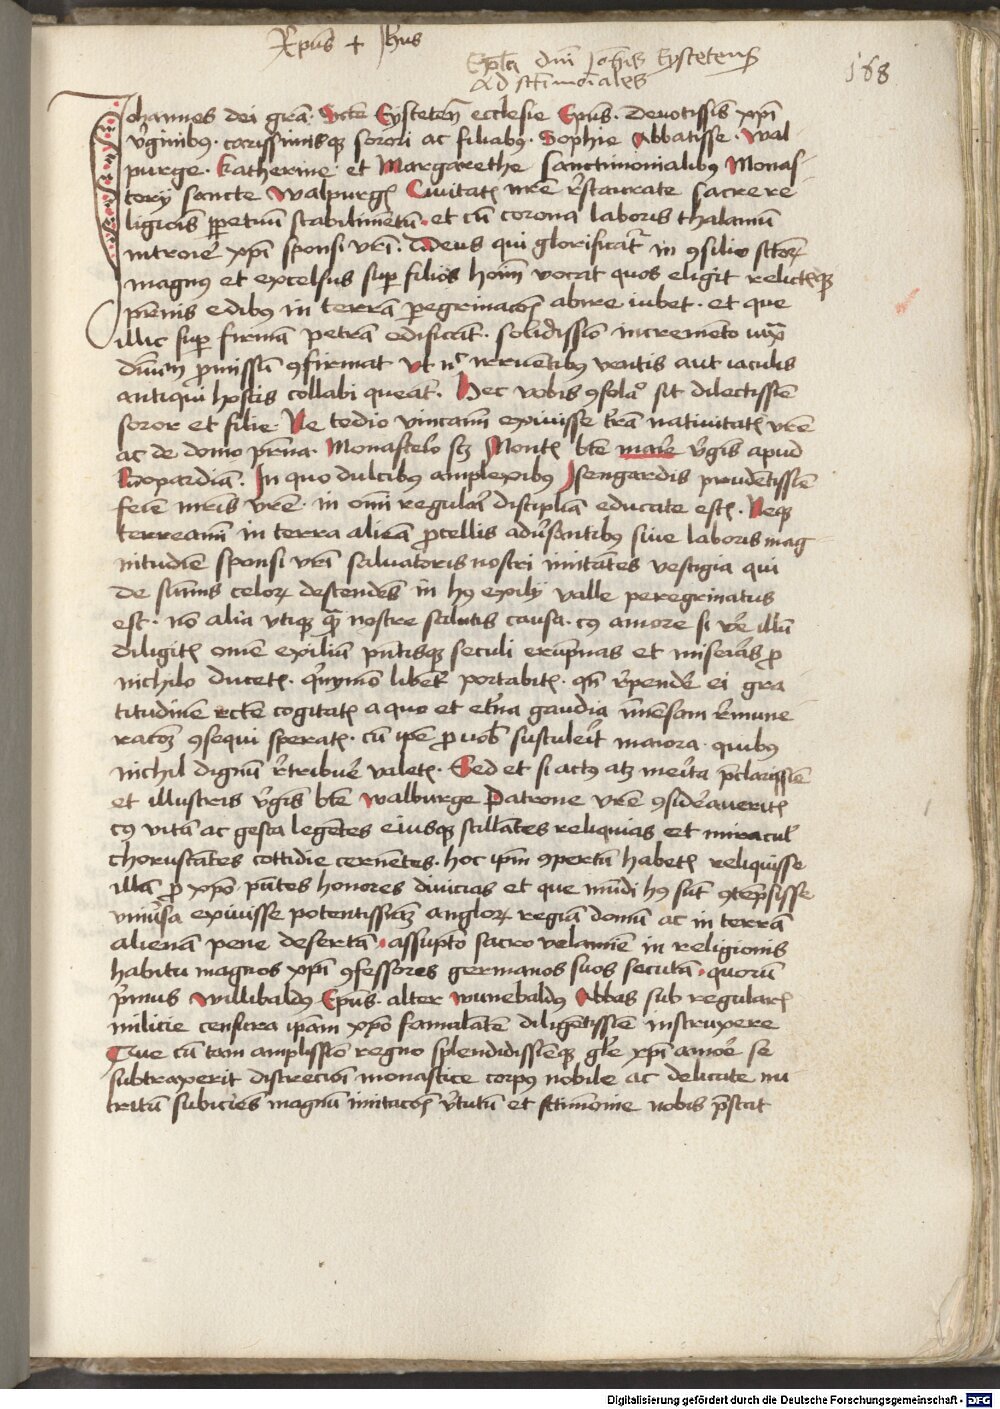 Xpus + Jhus
Epla dni Johis Eystetens
Ad sctimoniales
168
Johannes dei gra. Scte Eysteten ecclesie Epus. Deuotissis xpi
v'ginibus. carissimisque sorori ac filiabus. Sophie Abbatisse. Wal
purge. Katherine et Margarethe sanctimonialibus Monas-
tery sancte Walpurg Ciuitatis nre r'staurate sacre re-
ligiois perpetuu stabilimetu. et cu corona laboris thalamu
introire xpi sponsi vri. Deus qui glorificat' in consilio sctorum
magnus et excelsus super filios hoim vocat quos eligit relictisque
edibus in terra peregrinacois abire iubet. et que
illic super firma petra edificat. solidissio incremeto iuxta
diuinu promissu confirmat ut no irruetibus ventis aut iaculis
antiqui hostis collabi queat. Hec vobis consolao sit dilectissie
soror et filie. Ne tedio vincamini exiuisse terra natiuitatis vre
ac de domo prna. Monasterio scz Montis bte marie v'gis apud
Bopardia. In quo dulcibus amplexibus Isengardis prudetissie
mris vre in omi regulari disciplia educate estis. Neque
terreamini in terra aliea procellis aduersantibus siue laboris mag
nitudie sponsi vri saluatoris nostri imitates vestigia qui
de summis celorum descendes in hus exily valle peregrinatus
est. no alia vtique quam nostre salutis causa. cuius amore si vere illu
diligitis ome exiliu pntisque seculi erupnas et miserias pro
nichilo ducetis. quinymo libent' portabitis. r'pendere ei gra
titudinem recte cogitatis a quo et et'na gaudia imensam r'mune
racoem consequi speratis. cu ipe pro uobis sustulerit maiora quibus
nichil dignu r'tribuere valetis. Sed et si actus atque merita preclarissie
et illustris v'gis bte Walburge Patrone vre consideraueritis
cuius vita ac gesta legetes eiusque stillates reliquias et miracul'
choruscates cottidie cernetes. hoc ipm compertu habetis reliquisse
illa pro xpo pntes honores diuicias et que mudi hus sut contepsisse
vniuersa exiuisse potentissimam anglorum regia domu ac in terra
alienam pene deserta. assupto sacro velamie in religionis
habitu magnos xpi confessores germanos suos secuta. quoru
p'mus Willibaldus Epus. alter Wunebaldus Abbas sub regularis
milicie censura ipam xpo famulate diligetissie instruxere
Que cu tam amplissio regno splendidissieque gle xpi amore se
subtraxerit districioi monastice corpus nobile ac delicate nu
tritu subicies magna imitacois v'tutu et sctimonie nobis prestat